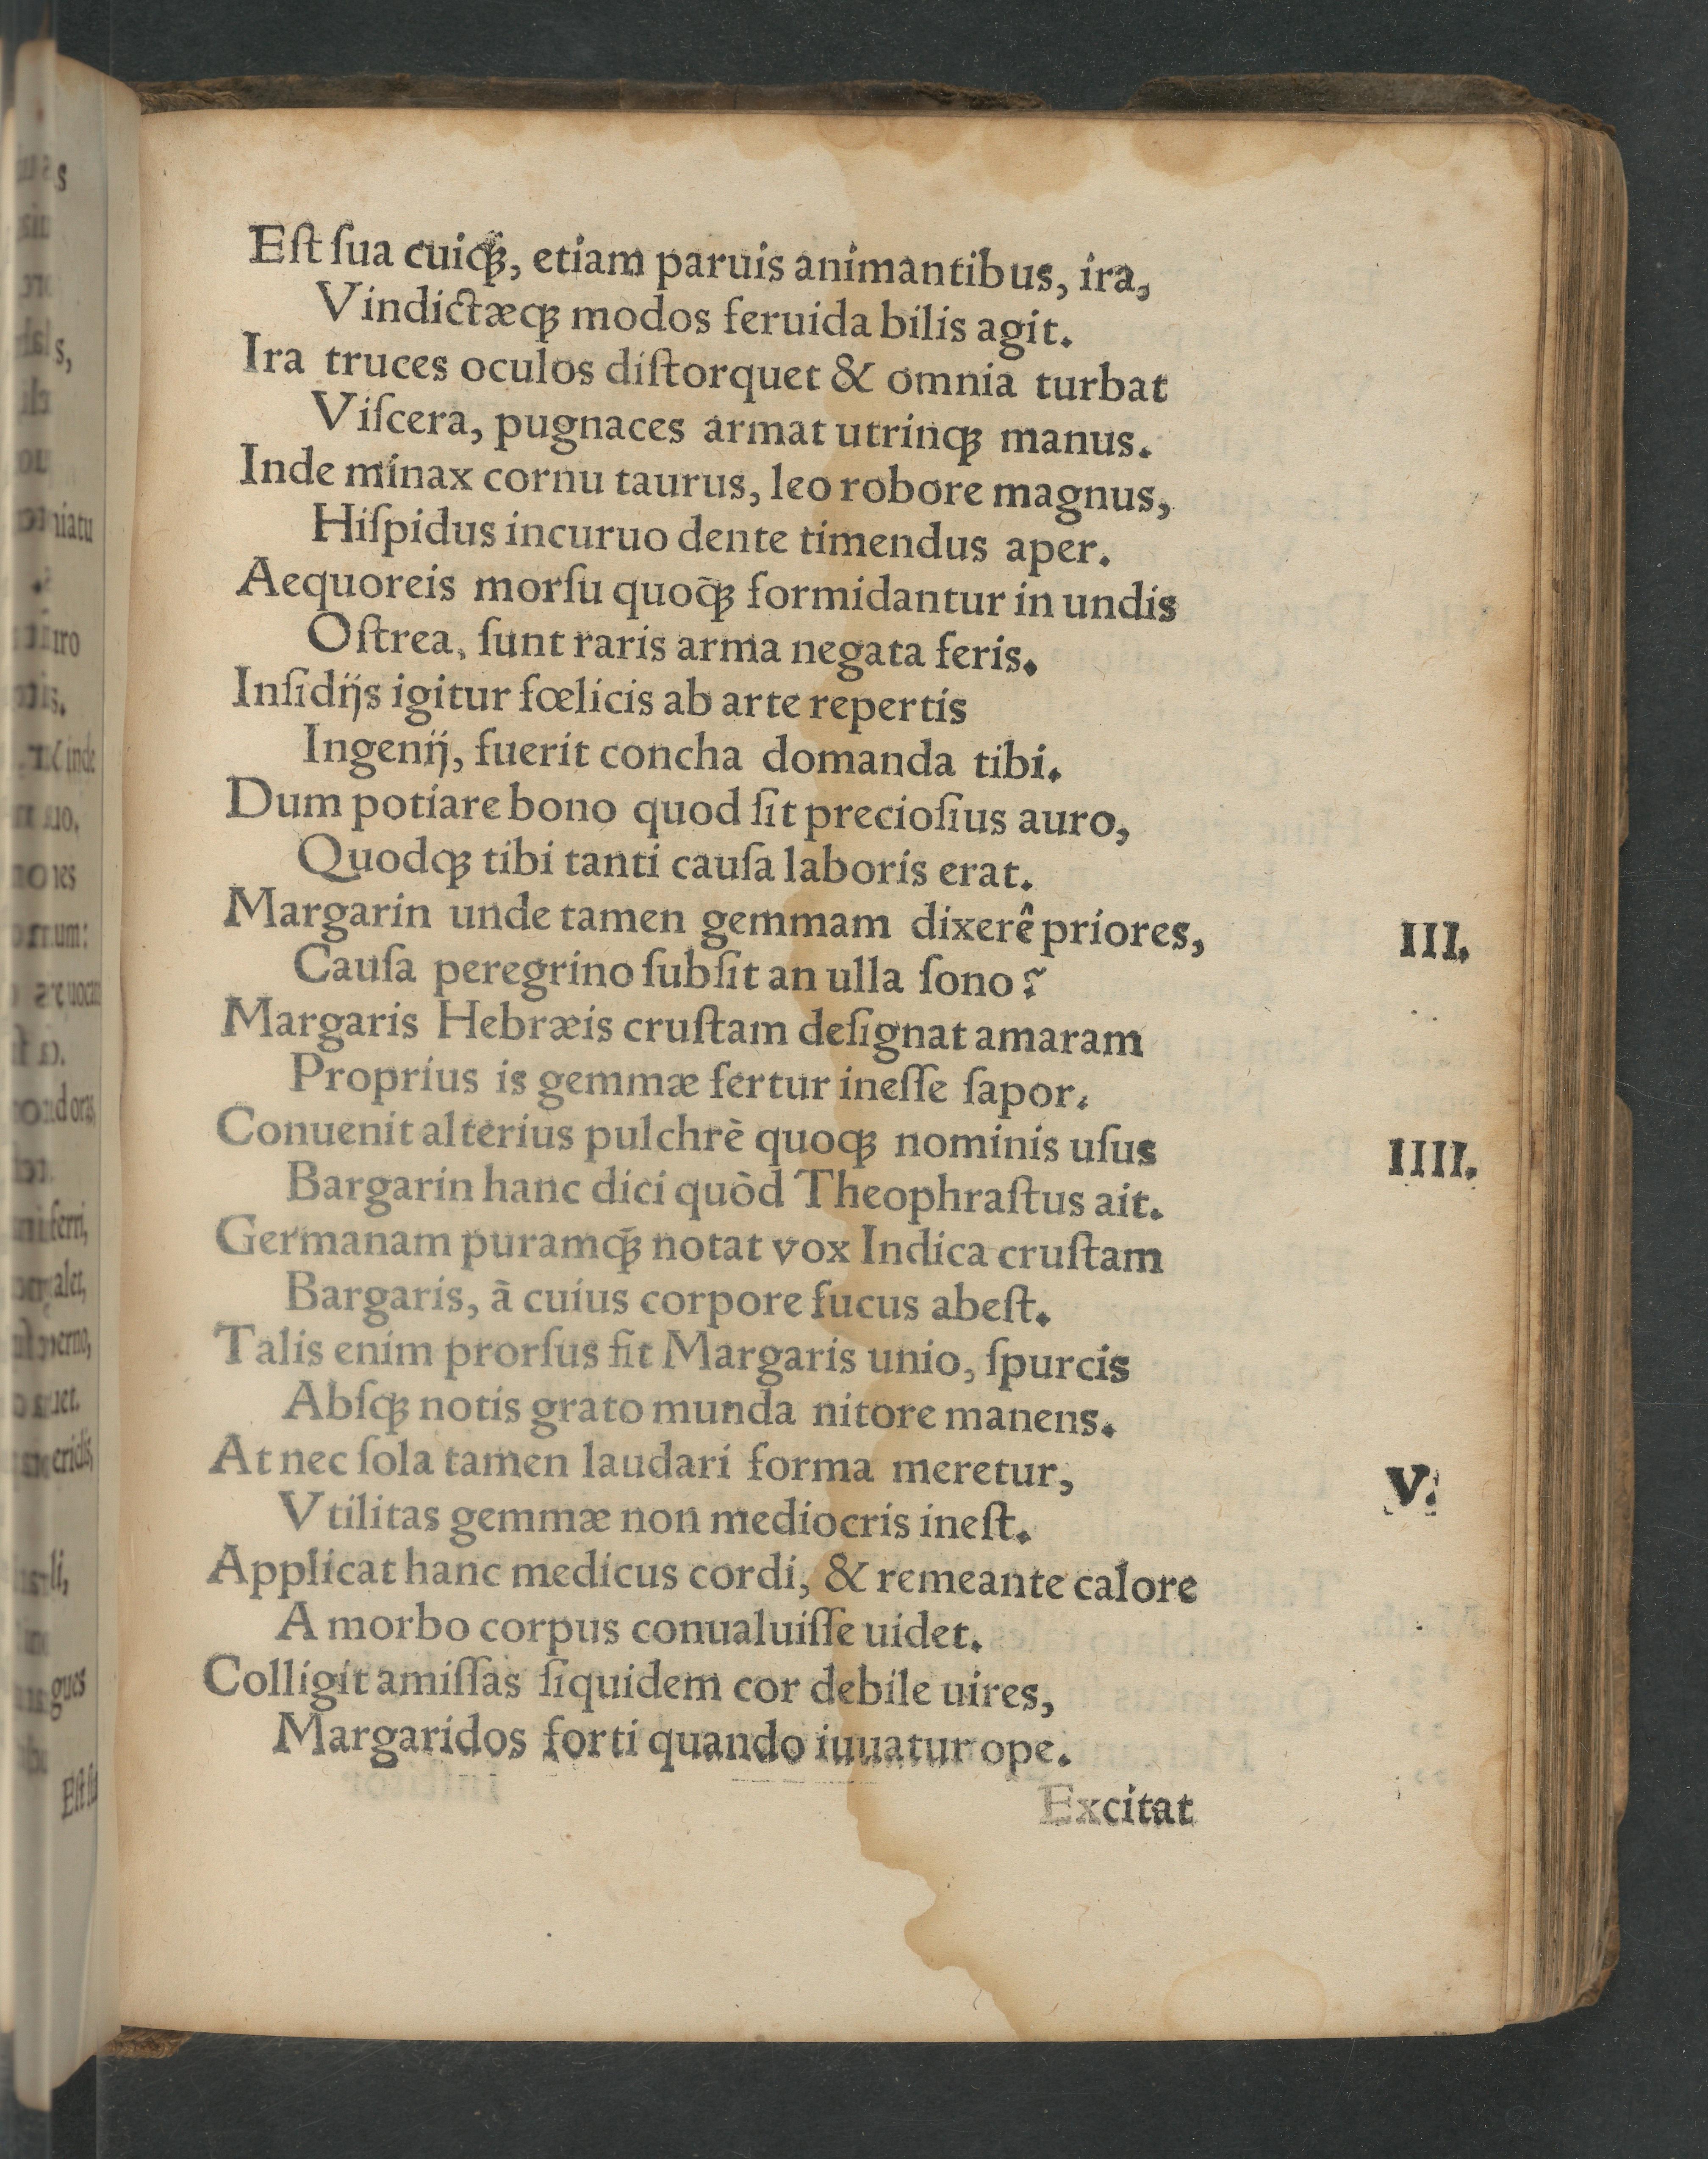 Eſt ſua cuiqꝫ, etiam paruis animantibus, ira,
Vindictæqꝫ modos feruida bilis agit.
Ira truces oculos diſtorquet & omnia turbat
Viſcera, pugnaces armat utrinqꝫ manus.
Inde minax cornu taurus, leo robore magnus,
Hiſpidus incuruo dente timendus aper.
Aequoreis morſu quoqꝫ̃ formidantur in undis
Oſtrea, ſunt raris arma negata feris.
Inſidijs igitur fœlicis ab arte repertis
Ingenij, fuerit concha domanda tibi.
Dum potiare bono quod ſit precioſius auro,
Quodqꝫ tibi tanti cauſa laboris erat.
Margarin unde tamen gemmam dixerê priores, III.
Cauſa peregrino ſubſit an ulla ſono?
Margaris Hebræis cruſtam deſignat amaram
Proprius is gemmæ fertur ineſſe ſapor.
Conuenit alterius pulchrè quoqꝫ nominis uſus IIII.
Bargarin hanc dici quòd Theophraſtus ait.
Germanam puramqꝫ́ notat vox Indica cruſtam
Bargaris, à cuius corpore fucus abeſt.
Talis enim prorſus fit Margaris unio, ſpurcis
Abſqꝫ notis grato munda nitore manens.
At nec ſola tamen laudari forma meretur, V.
Vtilitas gemmæ non mediocris ineſt.
Applicat hanc medicus cordi, & remeante calore
A morbo corpus conualuiſſe uidet.
Colligit amiſſas ſiquidem cor debile uires,
Margaridos forti quando iuuatur ope.
Excitat